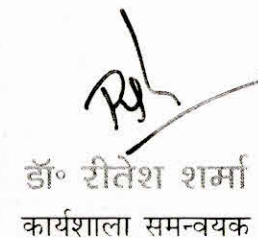 डॉ॰ रीतेश शर्मा
कार्यशाला समन्वयक